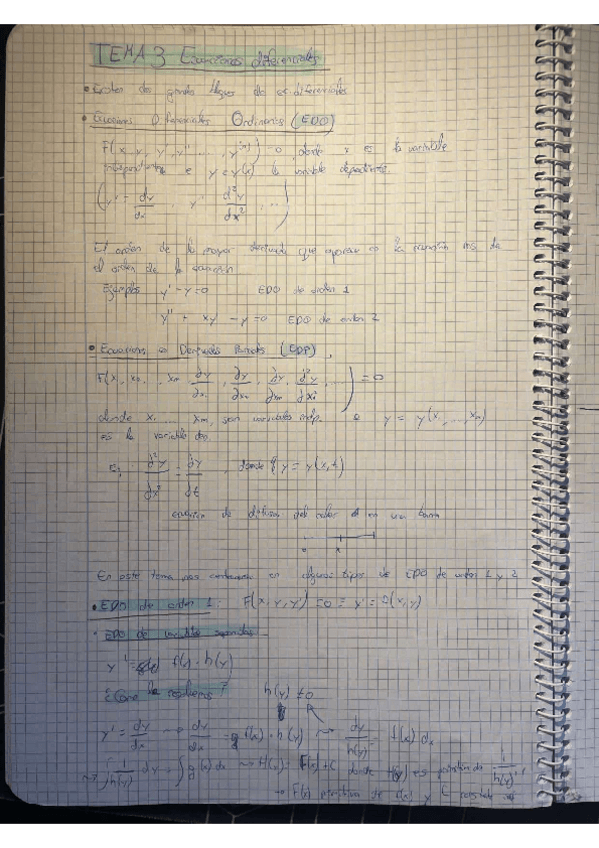 TEMA 3 Ecuaciones diferenciales
• Existen dos grandes bloques de ec. diferenciales
• Ecuaciones Diferenciales Ordinarias (EDO)
F(x, y, y', y'', ..., y⁽ⁿ⁾) = 0, donde x es la variable
independiente e y = y(x) la variable dependiente.
(y' = dy/dx, y'' = d²y/dx², ...)
El orden de la mayor derivada que aparece en la ecuación nos da
el orden de la ecuación
Ejemplos y' - y = 0 EDO de orden 1
y'' + xy - y = 0 EDO de orden 2
• Ecuaciones en Derivadas Parciales (EDP)
= 0
donde x₁ ... xₙ, son variables indp. e y = y(x₁, ..., xₙ)
es la variable dep.
∂²y/∂x² = ∂y/∂t, donde y = y(x, t)
ecuación de difusión del calor en una barra
0 x
En este tema nos centraremos en algunos tipos de EDO de orden 1 y 2
• EDO de orden 1: F(x, y, y') = 0 = y' =
• EDO de variables separadas
y' = f(x) · h(y)
¿Cómo la resolvemos? h(y) ≠ 0
y' = dy/dx → dy/dx = f(x) · h(y) → dy/h(y) = f(x) dx
→ ∫ 1/h(y) dy = ∫ f(x) dx → H(y) = F(x) + C donde H(y) es primitiva de 1/h(y),
→ F(x) primitiva de f(x) y C